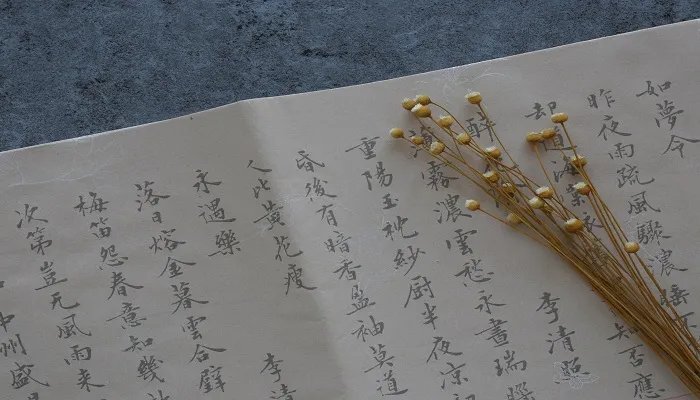 如夢令
昨夜雨疏風驟濃睡不
却道海棠 知否應
醉 李清照
薄霧濃雲愁永晝瑞腦
重陽玉枕紗厨半夜涼初
昏後有暗香盈袖莫道
人比黃花瘦
永遇樂 李清
落日熔金暮雲合璧
梅笛怨春意知幾
次第豈无風雨來
中州盛